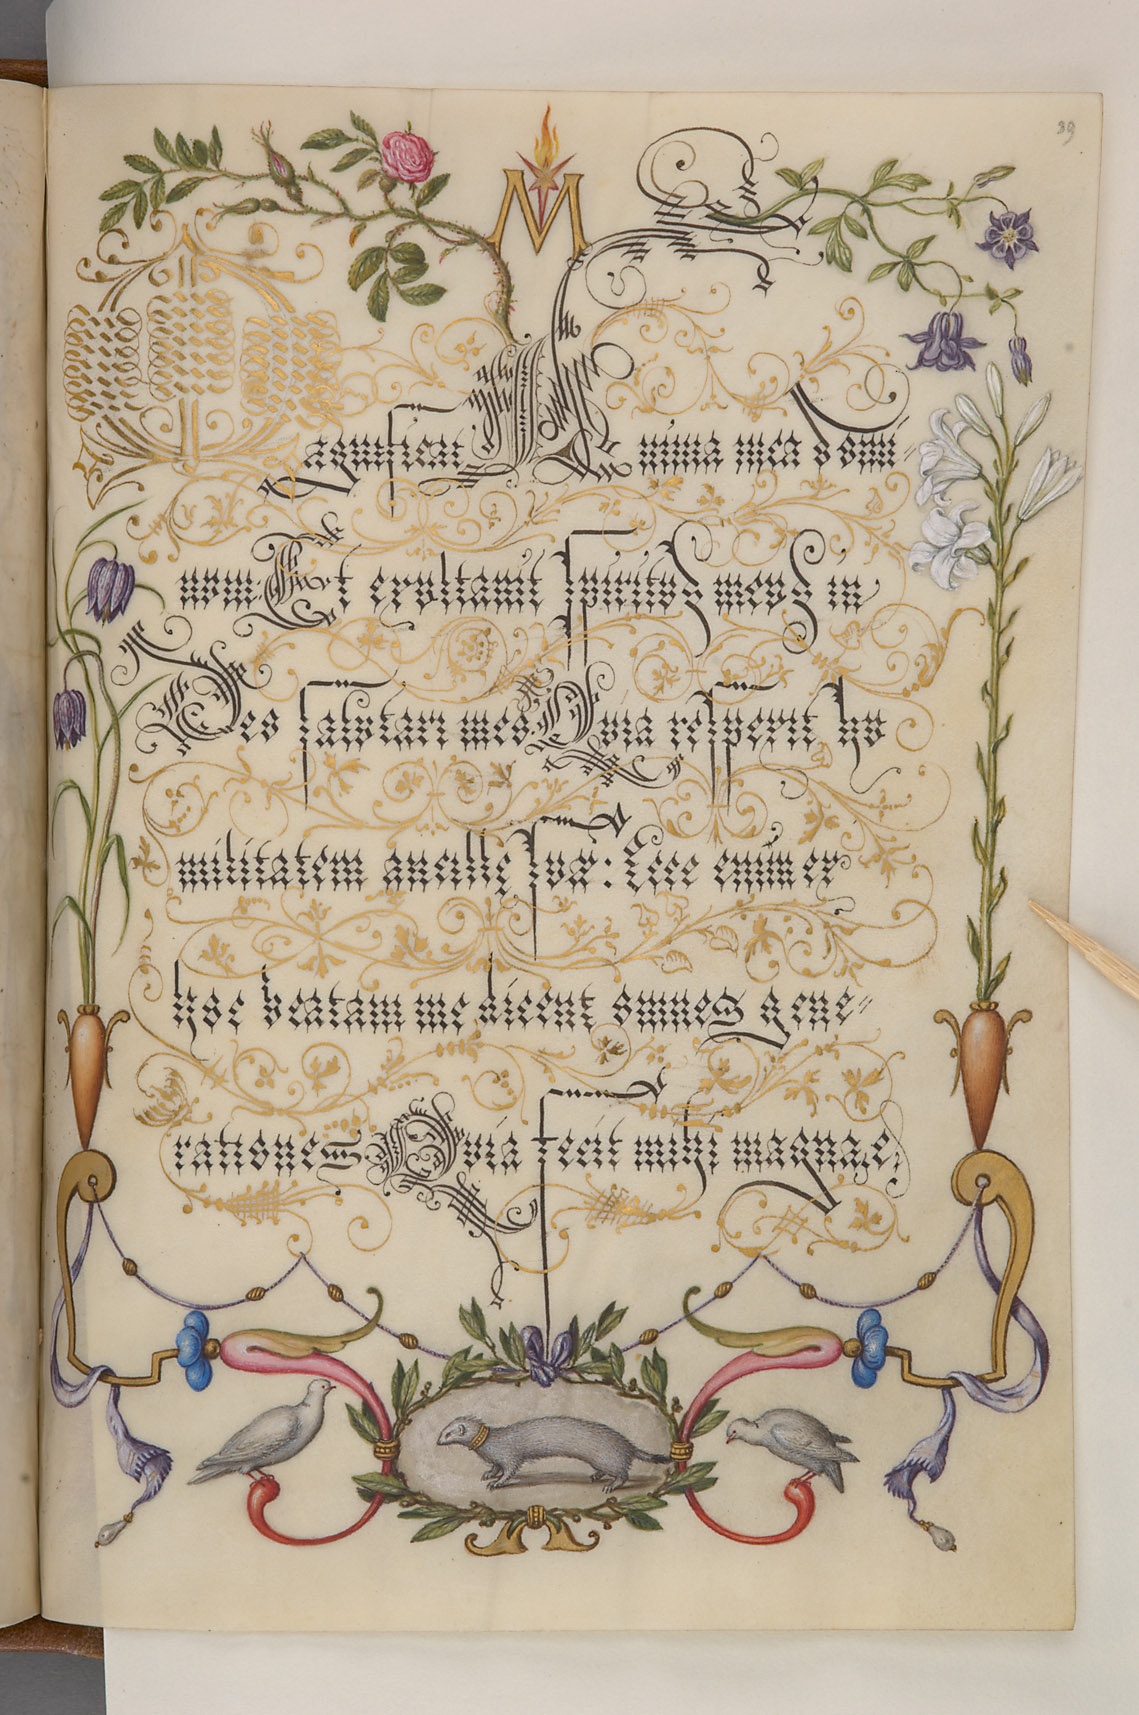 39
M
Magnificat Anima mea domi-
nvm: Et exvltavit spiritvs mevs in
Deo salvtari meo. Qvia respexit hv
militatem ancillę svæ: Ecce enim ex
hoc beatam me dicent omnes gene-
rationes Qvia fecit mihi magna,